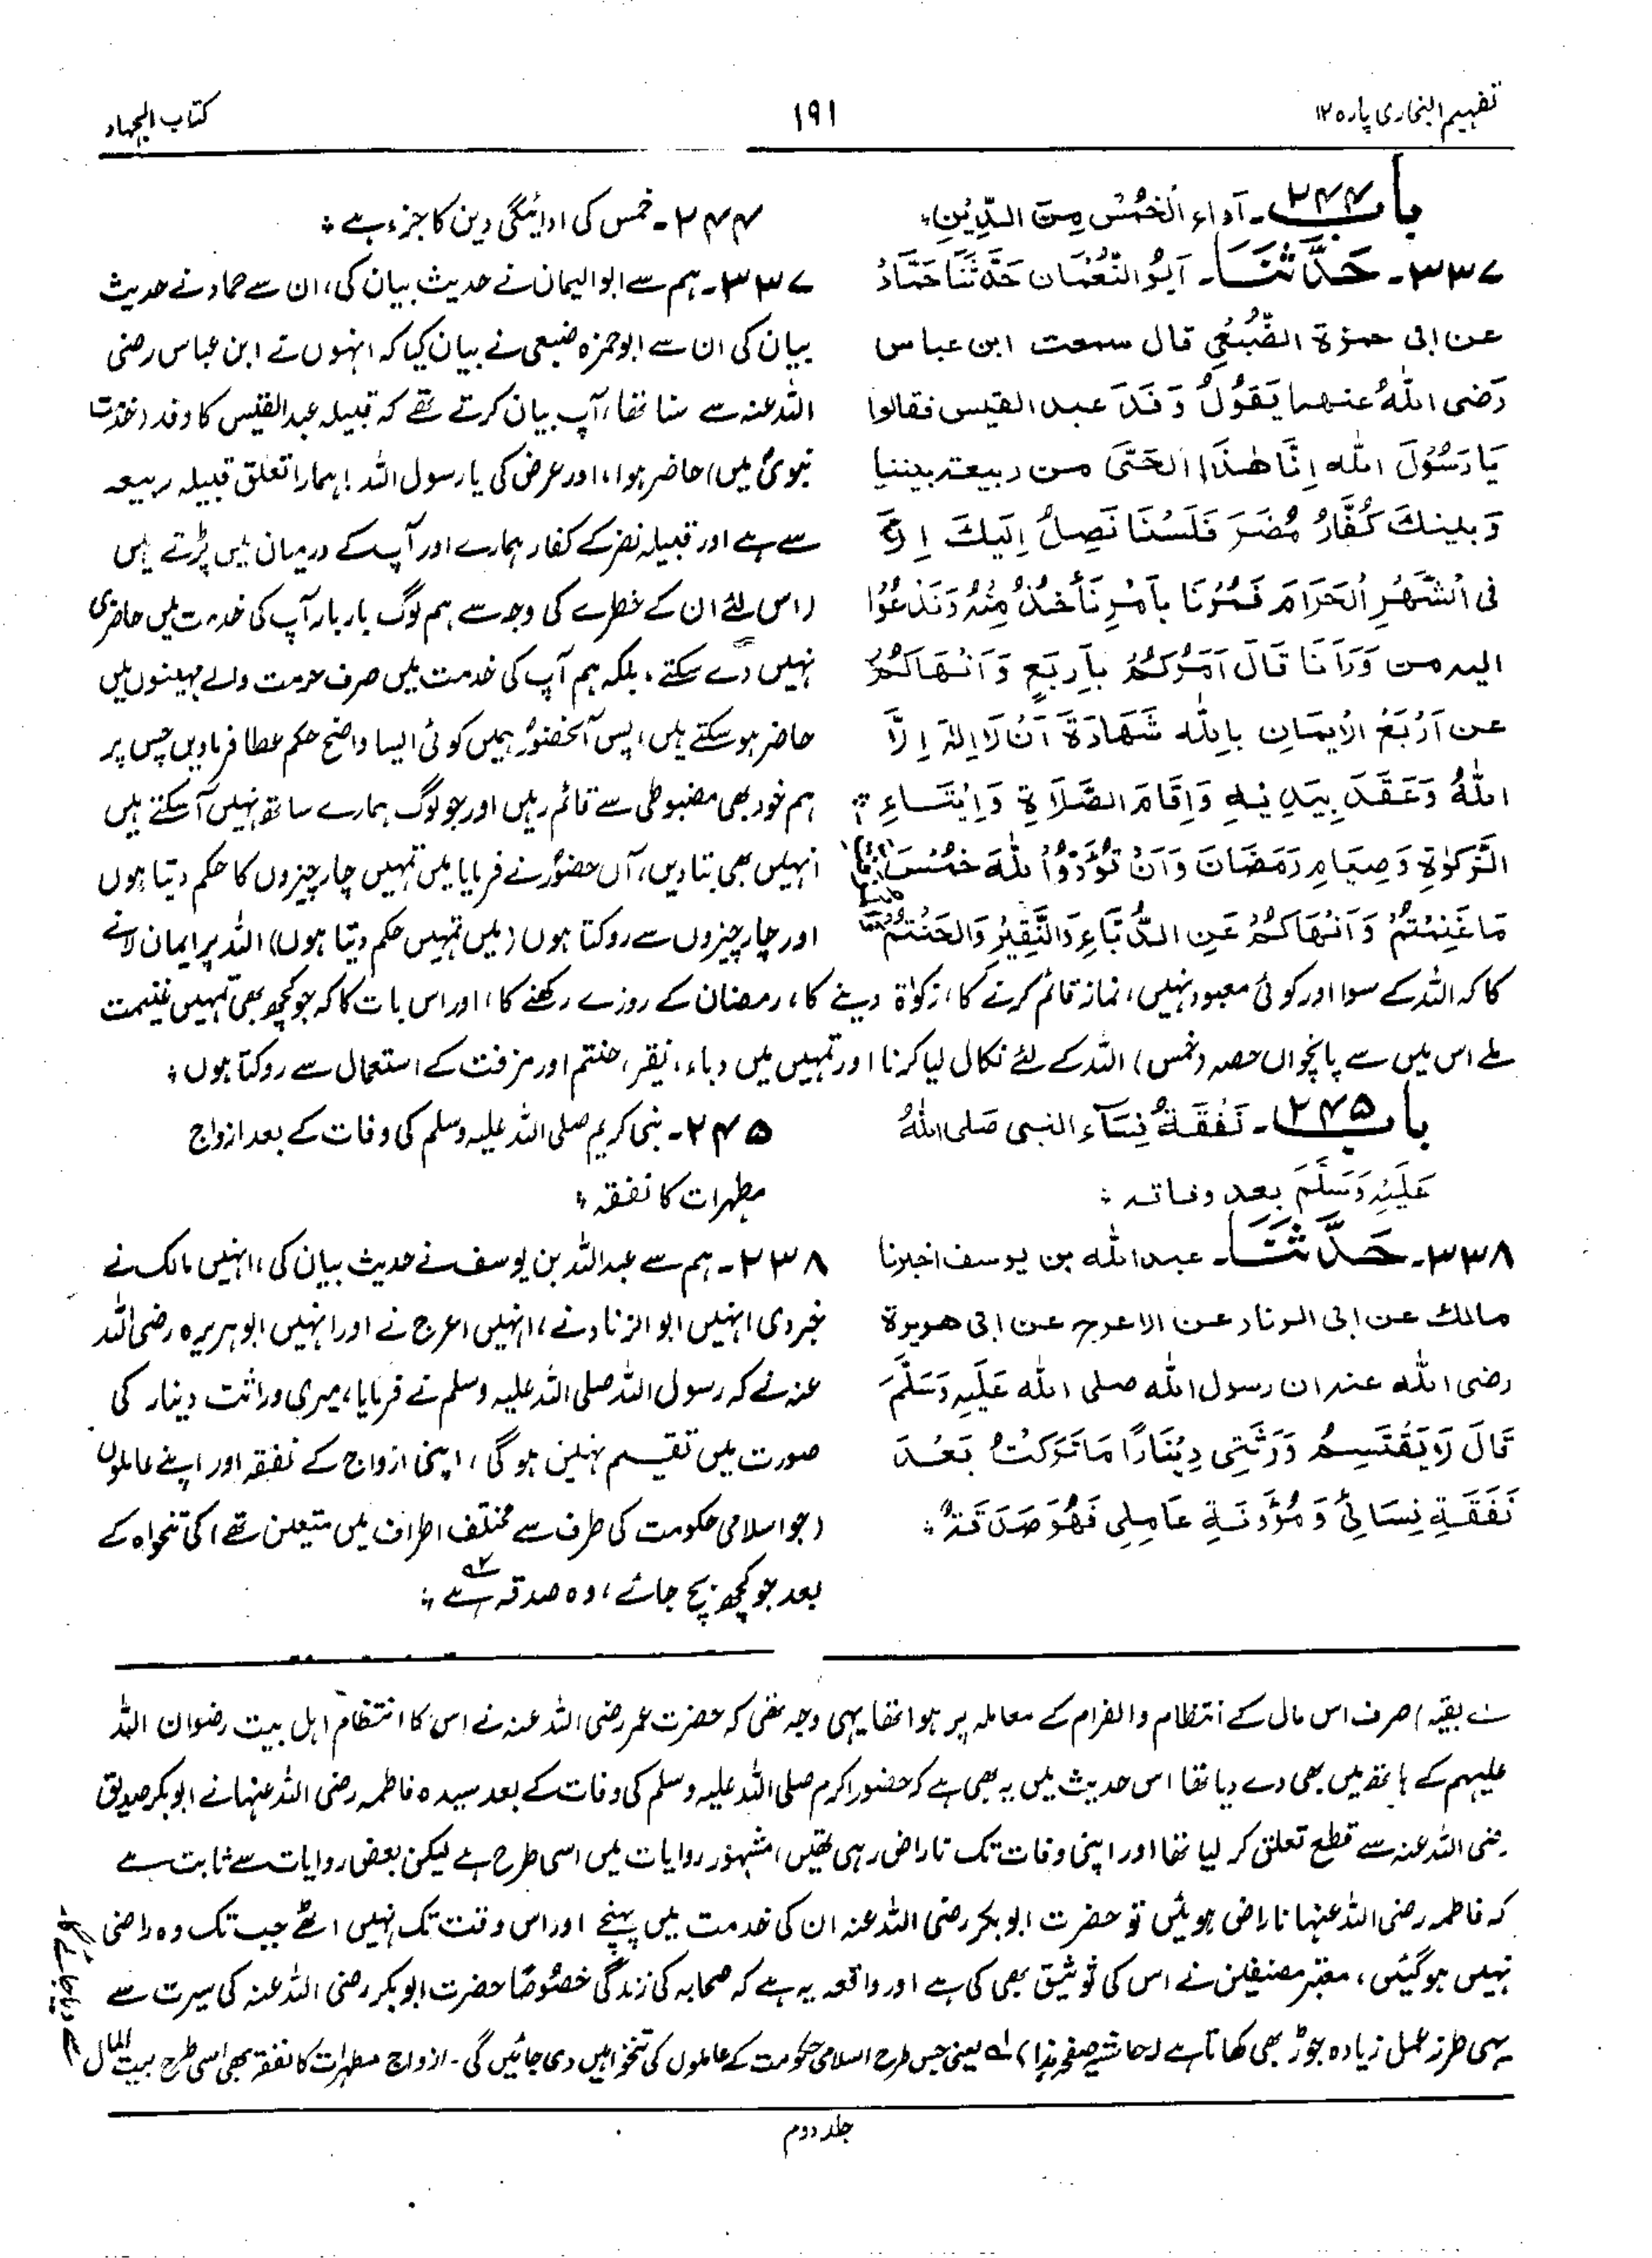 تفہیم البخاری پارہ ۱۲
۱۹۱
کتاب الجہاد
باب ۲۴۴۔ اَداءُ الْخُمُسِ مِنَ الدِّیْنِ ؞
۳۳۷۔ حَدَّثَنَا۔ اَبُو النُّعْمَان حَدَّثَنَا حَمَّادٌ
عن ابی حمزة الضُّبَعِی قال سمعت ابن عباس
رَضی اللّٰهُ عنهما یَقُوْلُ وَفَدَ عبد القیس فقالوا
یَا رَسُوْلَ اللّٰه اِنَّا هٰذَا الحَیَّ من ربیعة بیننا
وَبینكَ كُفَّارُ مُضَرَ فَلَسْنَا نَصِلُ اِلَیكَ اِلَّا
فی الشَّهْرِ الْحَرَامِ فَمُرْنَا بِاَمْرٍ نَأخُذُ مِنْهُ وَنَدْعُوْا
الیه من وَرَآنَا قَالَ آمُرُكُمْ بِاَرِبَعٍ وَاَنْهَاكُمْ
عن اَرْبَعٍ الاِیمَانِ بِاللّٰه شَهَادَةَ اَنْ لَا اِلهَ اِلَّا
اللّٰهُ وَعَقَدَ بِیَدِیْهِ وَاِقَامَ الصَّلَاةِ وَاِیْتَاءِ ؞
الزَّکوٰةِ وَصِیَامِ رَمَضَانَ وَاَنْ تُؤَدُّوْا لِلّٰهَ خُمُسَ
مَا غَنِمْتُمْ وَاَنْهَاكُمْ عَنِ الدُّبَّاءِ وَالنَّقِیْرِ وَالحَنْتَمِ
۲۴۴۔ خمس کی ادائیگی دین کا جزء ہے ؞
۳۳۷۔ ہم سے ابوالیمان نے حدیث بیان کی، ان سے حماد نے حدیث
بیان کی ان سے ابوحمزہ ضبعی نے بیان کیا کہ انہوں نے ابن عباس رضی
اللہ عنہ سے سنا تھا، آپ بیان کرتے تھے کہ قبیلہ عبدالقیس کا وفد (خدمت
نبویؐ میں) حاضر ہوا، اور عرض کی یا رسول اللہ! ہمارا تعلق قبیلہ ربیعہ
سے ہے اور قبیلہ مضر کے کفار ہمارے اور آپ کے درمیان میں پڑتے ہیں
(اس لئے ان کے خطرے کی وجہ سے ہم لوگ بار بار آپ کی خدمت میں حاضری
نہیں دے سکتے، بلکہ ہم آپ کی خدمت میں صرف حرمت والے مہینوں میں
حاضر ہو سکتے ہیں، پس آنحضورؐ ہمیں کوئی ایسا واضح حکم عطا فرمادیں جس پر
ہم خود بھی مضبوطی سے قائم رہیں اور جو لوگ ہمارے ساتھ نہیں آسکتے ہیں
انہیں بھی بتا دیں، آں حضورؐ نے فرمایا میں تمہیں چار چیزوں کا حکم دیتا ہوں
اور چار چیزوں سے روکتا ہوں (میں تمہیں حکم دیتا ہوں) اللہ پر ایمان لانے
کا کہ اللہ کے سوا اور کوئی معبود نہیں، نماز قائم کرنے کا، زکوٰۃ دینے کا، رمضان کے روزے رکھنے کا، اور اس بات کا کہ جو کچھ بھی تمہیں غنیمت
ملے اس میں سے پانچواں حصہ (خمس) اللہ کے لئے نکال لیا کرنا اور تمہیں میں دباء، نقیر، حنتم اور مزفت کے استعمال سے روکتا ہوں ؞
باب ۲۴۵۔ نَفْقَةُ نِسَآء النبی صَلی اللّٰهُ
عَلَیْهِ وَسَلَّمَ بعد وفاته ؞
۳۳۸۔ حَدَّثَنَا۔ عبد اللّٰه بن یوسف اخبرنا
مالك عن ابی الزناد عن الاعرج عن ابی هریرة
رضی اللّٰه عنه ان رسول اللّٰه صلی اللّٰه عَلَیهِ وَسَلَّمَ
قَالَ لَا یَقْتَسِمُ وَرَثَتِی دِیْنَارًا مَا تَرَكْتُ بَعْدَ
نَفَقَةِ نِسَائِیْ وَمُؤْنَةِ عَامِلِی فَهُوَ صَدَقَةٌ ؞
۲۴۵۔ نبی کریم صلی اللہ علیہ وسلم کی وفات کے بعد ازواج
مطہرات کا نفقہ ؞
۲۳۸۔ ہم سے عبداللہ بن یوسف نے حدیث بیان کی، انہیں مالک نے
خبر دی انہیں ابو الزناد نے، انہیں اعرج نے اور انہیں ابوہریرہ رضی اللہ
عنہ نے کہ رسول اللہ صلی اللہ علیہ وسلم نے فرمایا، میری وراثت دینار کی
صورت میں تقسیم نہیں ہو گی، اپنی ازواج کے نفقہ اور اپنے عاملوں
(جو اسلامی حکومت کی طرف سے مختلف اطراف میں متعین تھے) کی تنخواہ کے
بعد جو کچھ بچ جائے، وہ صدقہ ہے ؞
بقیہ) صرف اس مال کے انتظام و انصرام کے معاملہ پر ہوا تھا یہی وجہ تھی کہ حضرت عمر رضی اللہ عنہ نے اس کا انتظام اہل بیت رضوان اللہ
علیہم کے ہاتھ میں بھی دے دیا تھا اس حدیث میں یہ بھی ہے کہ حضور اکرم صلی اللہ علیہ وسلم کی وفات کے بعد سیدہ فاطمہ رضی اللہ عنہا نے ابوبکر صدیق
رضی اللہ عنہ سے قطع تعلق کر لیا تھا اور اپنی وفات تک ناراض رہی تھیں، مشہور روایات میں اسی طرح ہے لیکن بعض روایات سے ثابت ہے
کہ فاطمہ رضی اللہ عنہا ناراض ہوئیں تو حضرت ابو بکر رضی اللہ عنہ ان کی خدمت میں پہنچے اور اس وقت تک نہیں اٹھے جب تک وہ راضی
نہیں ہو گئیں، معتبر مصنفین نے اس کی توثیق بھی کی ہے اور واقعہ یہ ہے کہ صحابہ کی زندگی خصوصًا حضرت ابوبکر رضی اللہ عنہ کی سیرت سے
یہی طرز عمل زیادہ جوڑ بھی کھاتا ہے (حاشیہ صفحہ ہذا) ۱؎ یعنی جس طرح اسلامی حکومت کے عاملوں کی تنخواہیں دی جائیں گی۔ ازواج مطہرات کا نفقہ بھی اسی طرح بیت المال
سے دیا جائے گا۔
جلد دوم